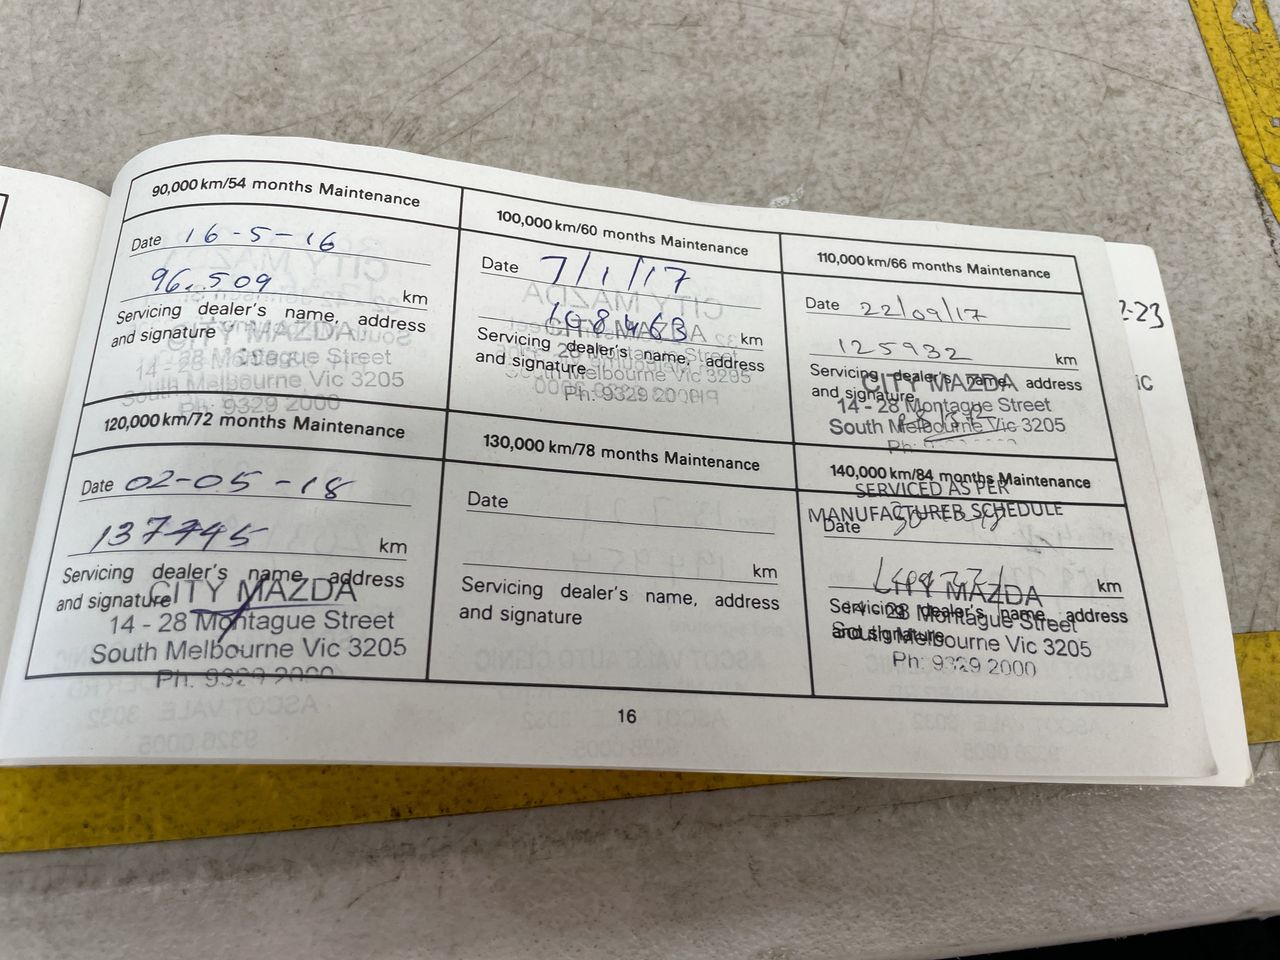 90,000 km/54 months Maintenance
Date 16-5-16
96,509 km
Servicing dealer's name, address
and signature
CITY MAZDA
14 - 28 Montague Street
South Melbourne Vic 3205
Ph: 9329 2000
100,000 km/60 months Maintenance
Date 7/1/17
108463 km
Servicing dealer's name, address
and signature
CITY MAZDA
28 Montague Street
South Melbourne Vic 3205
Ph: 9329 2000
110,000 km/66 months Maintenance
Date 22/09/17
125932 km
Servicing dealer's name, address
and signature
CITY MAZDA
14 - 28 Montague Street
South Melbourne Vic 3205
Ph:
120,000 km/72 months Maintenance
Date 02-05-18
137745 km
Servicing dealer's name, address
and signature
CITY MAZDA
14 - 28 Montague Street
South Melbourne Vic 3205
Ph: 9329 2000
130,000 km/78 months Maintenance
Date
km
Servicing dealer's name, address
and signature
140,000 km/84 months Maintenance
SERVICED AS PER
MANUFACTURER SCHEDULE
Date
km
Servicing dealer's name, address
and signature
CITY MAZDA
14 - 28 Montague Street
South Melbourne Vic 3205
Ph: 9329 2000
16
2-23
IC